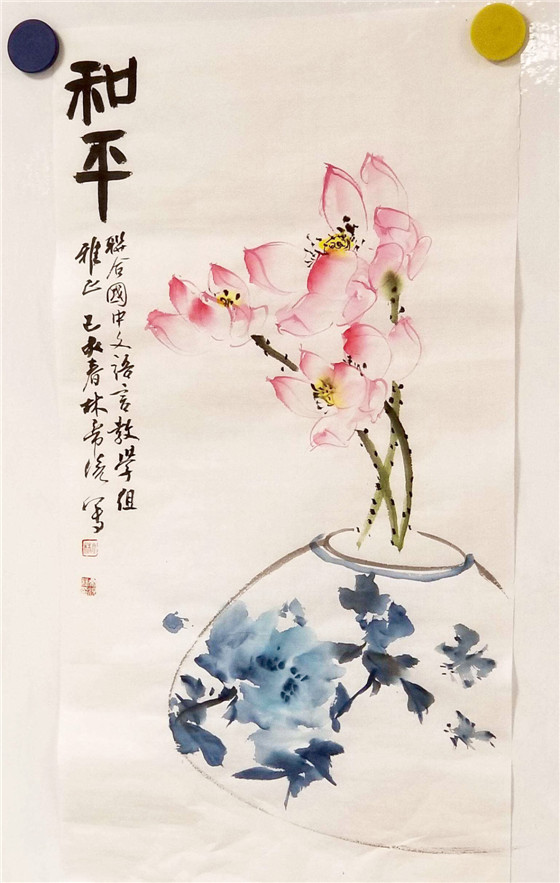 和平
聯合國中文語言教學組
雅正 己亥春林帝浣寫